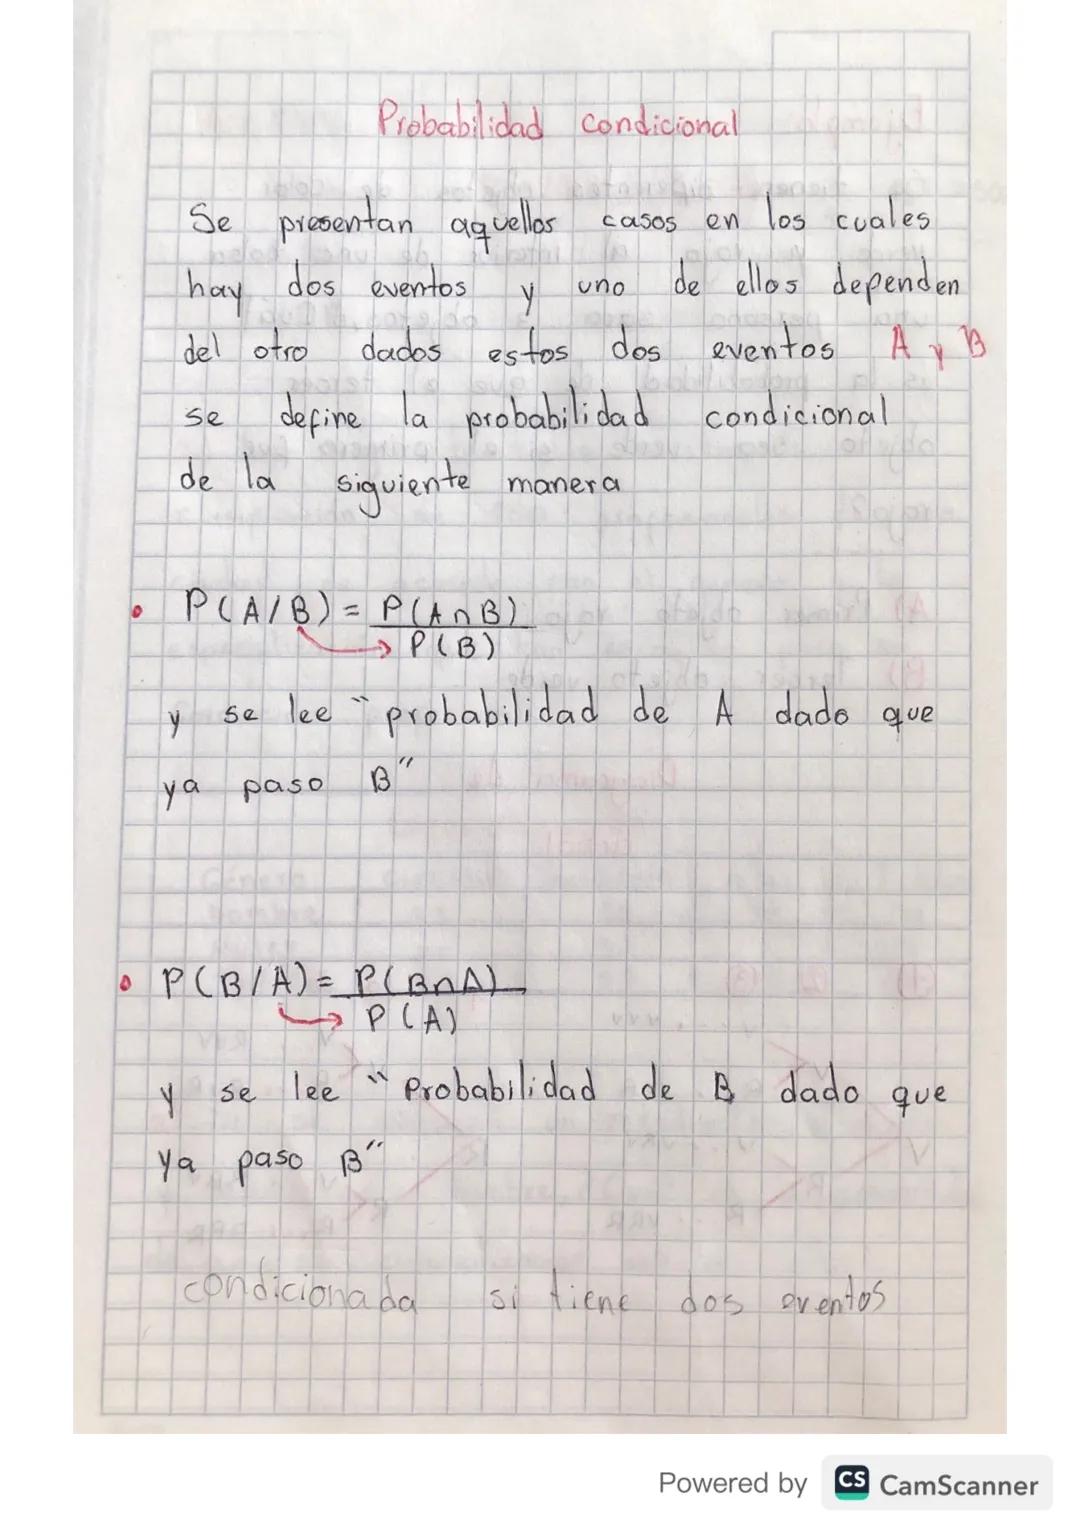 Probabilidad condicional
Se presentan aquellos casos en los cuales
hay dos eventos y uno de ellos dependen
del otro dados estos dos eventos A y B
se define la probabilidad condicional
de la siguiente manera
• P(A/B) = P(A∩B)
P(B)
y se lee "probabilidad de A dado que
ya paso B"
• P(B/A) = P(B∩A)
P(A)
y se lee "Probabilidad de B dado que
ya paso B"
condicionada si tiene dos eventos
Powered by CS CamScanner